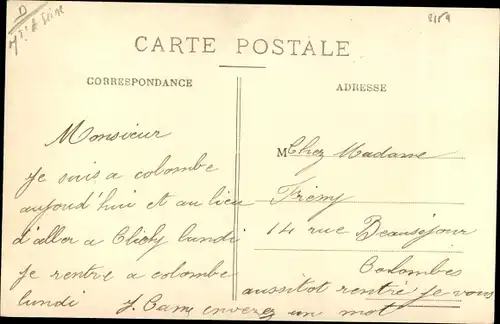 D
Sne
8159
CARTE POSTALE
CORRESPONDANCE
ADRESSE
Monsieur
Je suis a colombe
aujourd'hui et au lieu
d'aller a Clichy lundi
je rentre a colombe
lundi
M Chez Madame
Frémy
14 rue Beauséjour
Colombes
aussitot rentré je vous
enverez un mot